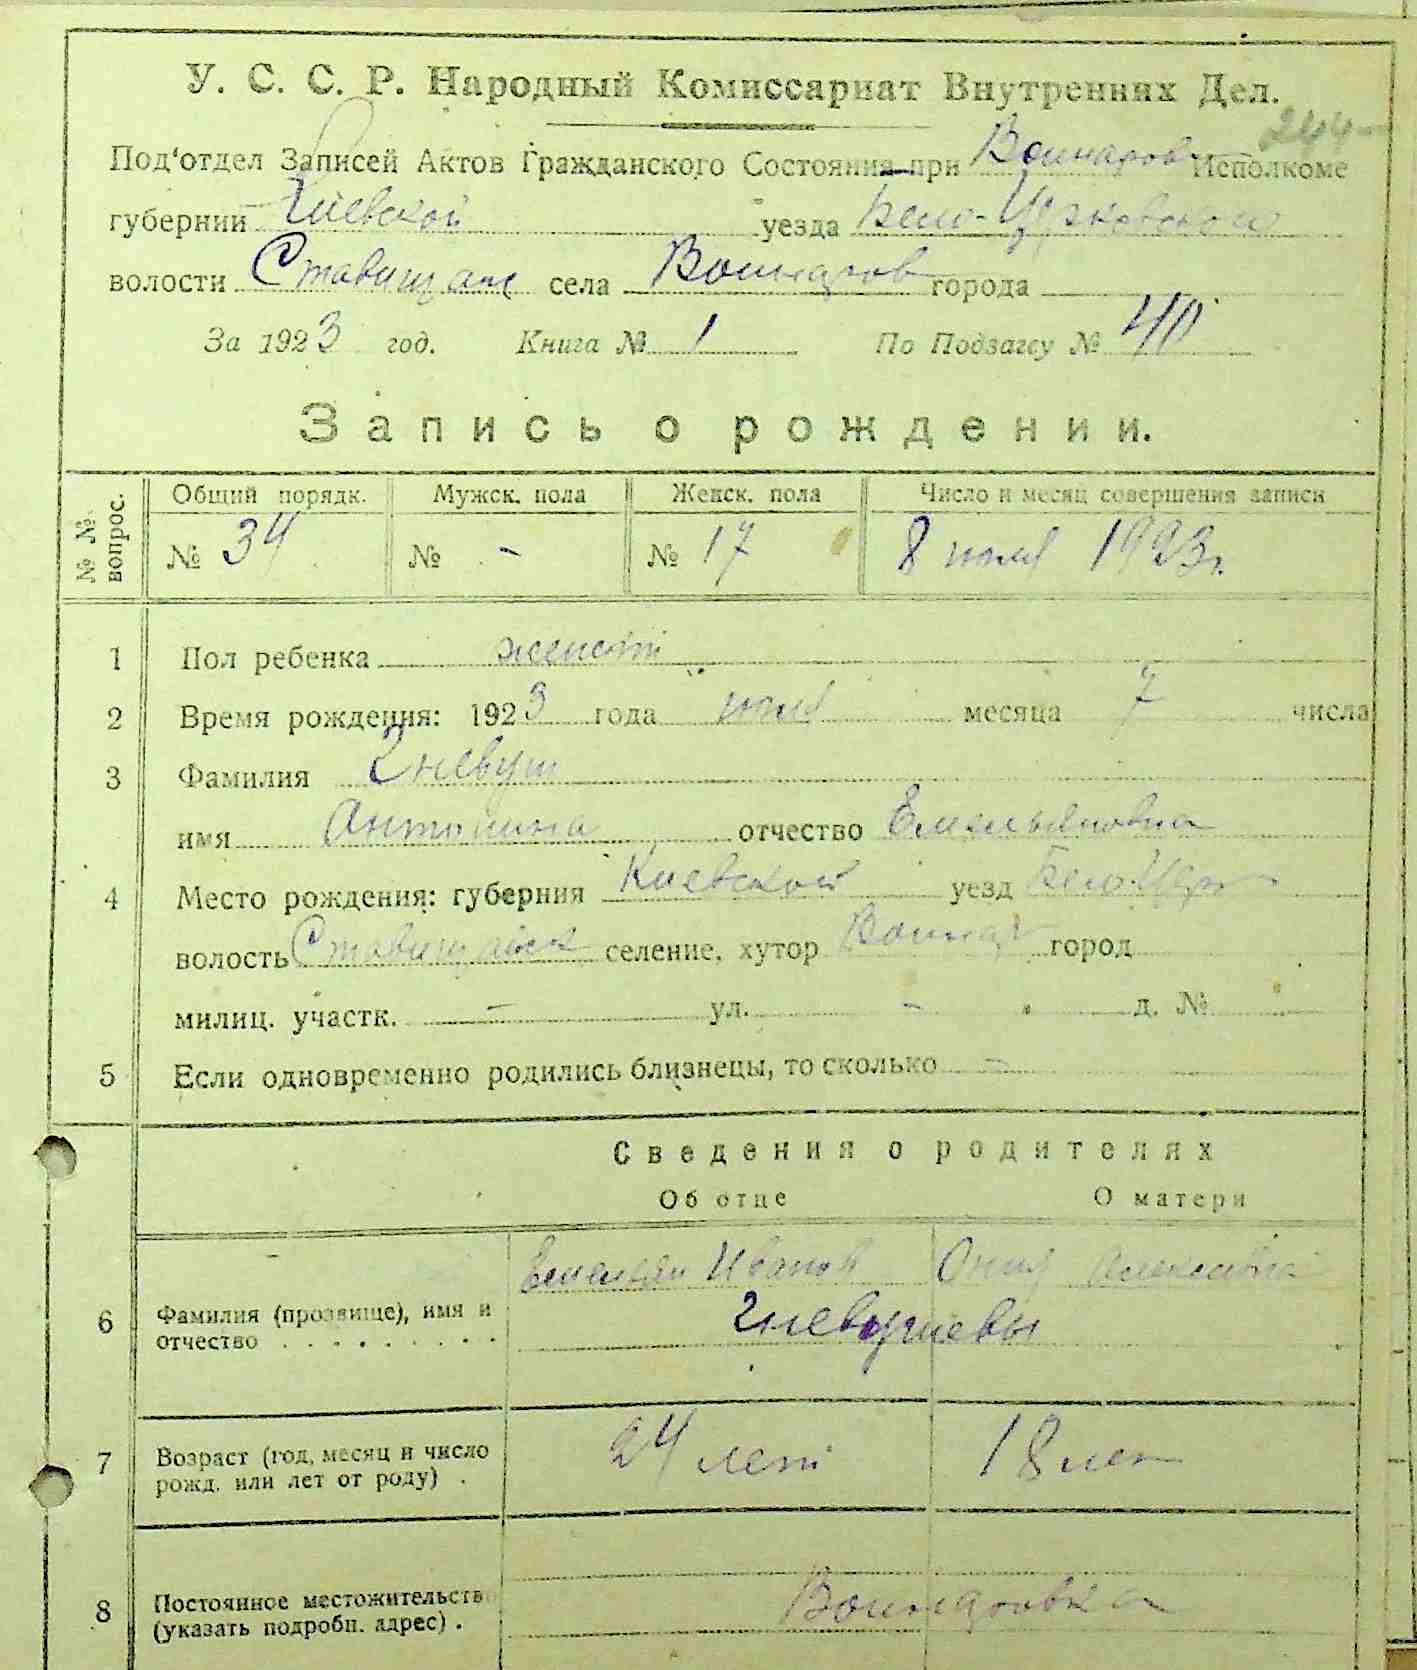 У. С. С. Р. Народный Комиссариат Внутренних Дел.
244
Под'отдел Записей Актов Гражданского Состояния при Воинаров Исполкоме
губернии Киевской уезда Бело-Церковском
волости Ставищан села города
За 1923 год. Книга № 1 По Подзагсу № 40
Запись о рождении.
№ № вопрос. Общий порядк. Мужск. пола Женск. пола Число и месяц совершения записи
№ 34 № - № 17 8 июля 1923 г.
1 Пол ребенка женск
2 Время рождения: 1923 года июля месяца 7 числа
3 Фамилия Гневуш
имя Антонина отчество Емельяновна
4 Место рождения: губерния Киевской уезд Бело-Церк
волость селение, хутор город
милиц. участк. - ул. - д. №
5 Если одновременно родились близнецы, то сколько -
Сведения о родителях
Об отце О матери
Емельян Иванов
6 Фамилия (прозвище), имя и
отчество . . . . . . . .
Гневушевы
7 Возраст (год, месяц и число
рожд. или лет от роду) . 24 лет 18 лет
8 Постоянное местожительств
(указать подробн. адрес) .